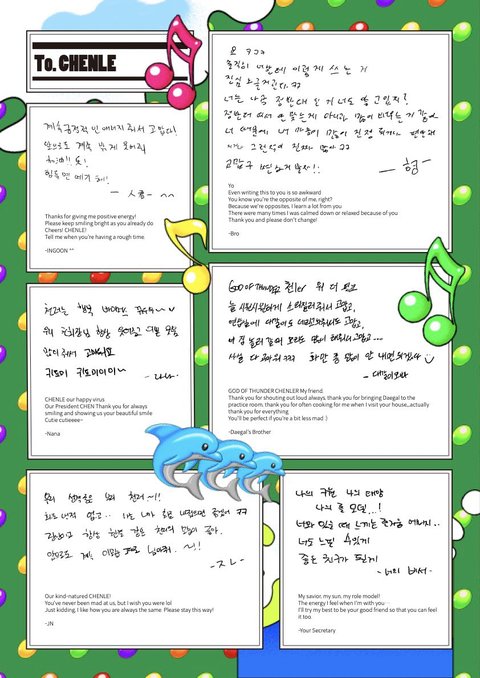 To. CHENLE
계속 긍정적인 에너지 줘서 고맙다!
앞으로도 계속 밝게 웃어줘
힘들면 얘기해!
Thanks for giving me positive energy!
Please keep smiling bright as you already do
Cheers! CHENLE!
Tell me when you're having a rough time.
-INGOON ^^
요 ㅋㅋㅋ
솔직히 너한테 이렇게 쓰는 거
진심 오글거린다.ㅋㅋ
너는 나랑 정반대인거 너도 알고있지?
정반대여서 안 맞는게 아니라 많이 배우는거 같아
너 때문에 내 마음이 많이 진정 되거나 편안해
지거나 그런적이 진짜 많아 ㅋㅋ
고맙구 변하지 말자!!
- 형 -
Yo
Even writing this to you is so awkward
You know you're the opposite of me, right?
Because we're opposites, I learn a lot from you
There were many times I was calmed down or relaxed because of you
Thank you and please don't change!
-Bro
천러는 행복 바이러스
우리 천회장님 항상 웃어주고 이쁜 모습
많이 줘서 고마워요
키요미이이~
- 나나 -
CHENLE our happy virus
Our President CHEN Thank you for always
smiling and showing us your beautiful smile
Cutie cutieeee~
-Nana
GOD OF THUNDER 천ler 워 더 펑요
늘 시원시원하게 소리질러줘서 고맙고,
연습실에 대갈이도 데리고와줘서도 고맙고,
너 집 놀러가면 요리도 많이 해줘서 고맙고...
사실 다 고마워 ㅋㅋㅋ 화만 좀 많이 안 내면 되겠다 :)
- 대갈이오빠
GOD OF THUNDER CHENLER My friend
Thank you for shouting out loud always, thank you for bringing Daegal to the
practice room, thank you for often cooking for me when I visit your house,,,actually
thank you for everything
You'll be perfect if you're a bit less mad :)
-Daegal's Brother
우리 우리 천러~!!
화도 낸적 없고.. 나는 너가 화를 내줬으면 좋겠어 ㅋㅋ
장난이고 항상 한결 같은 천러의 모습이 좋아.
앞으로도 계속 이렇게 지내줘~!!
Our kind-natured CHENLE!
You've never been mad at us, but I wish you were lol
Just kidding, I like how you are always the same. Please stay this way!
-JN
나의 구원 나의 태양
나의 롤 모델...!
너와 있을 때 느끼는 즐거운 에너지..
너도 느낄 수 있게
좋은 친구가 될게
- 너의 비서 -
My savior, my sun, my role model!
The energy I feel when I'm with you
I'll try my best to be your good friend so that you can feel
it too.
-Your Secretary